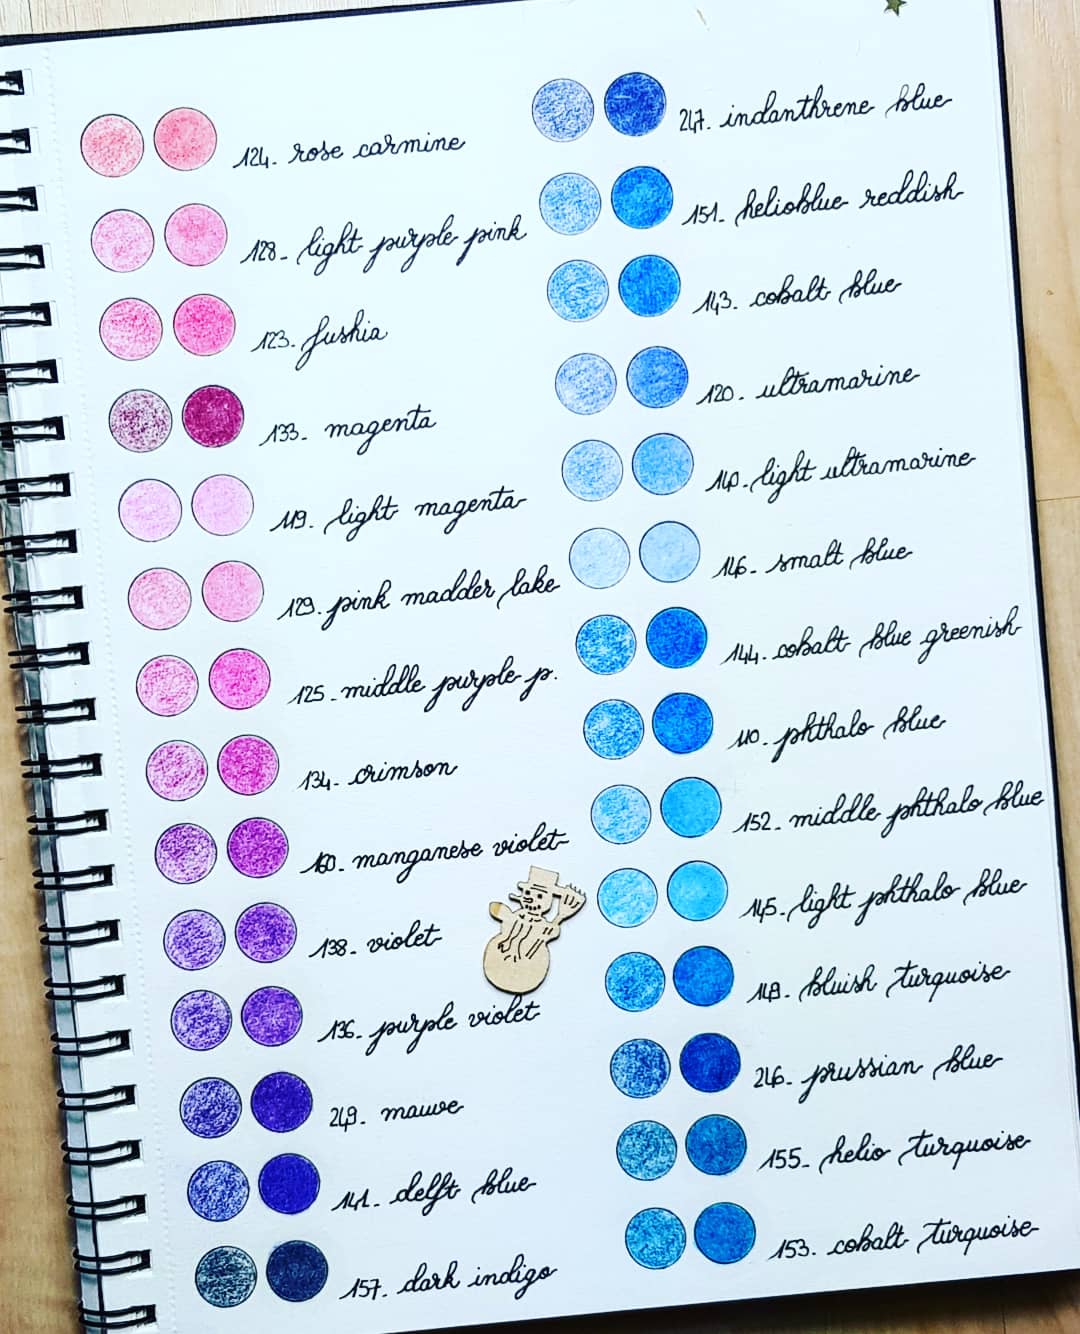 124. rose carmine
128. light purple pink
123. fushia
133. magenta
119. light magenta
129. pink madder lake
125. middle purple p.
134. crimson
160. manganese violet
138. violet
136. purple violet
249. mauve
141. delft blue
157. dark indigo
247. indanthrene blue
151. helioblue reddish
143. cobalt blue
120. ultramarine
140. light ultramarine
146. smalt blue
144. cobalt blue greenish
110. phthalo blue
152. middle phthalo blue
145. light phthalo blue
149. bluish turquoise
246. prussian blue
155. helio turquoise
153. cobalt turquoise